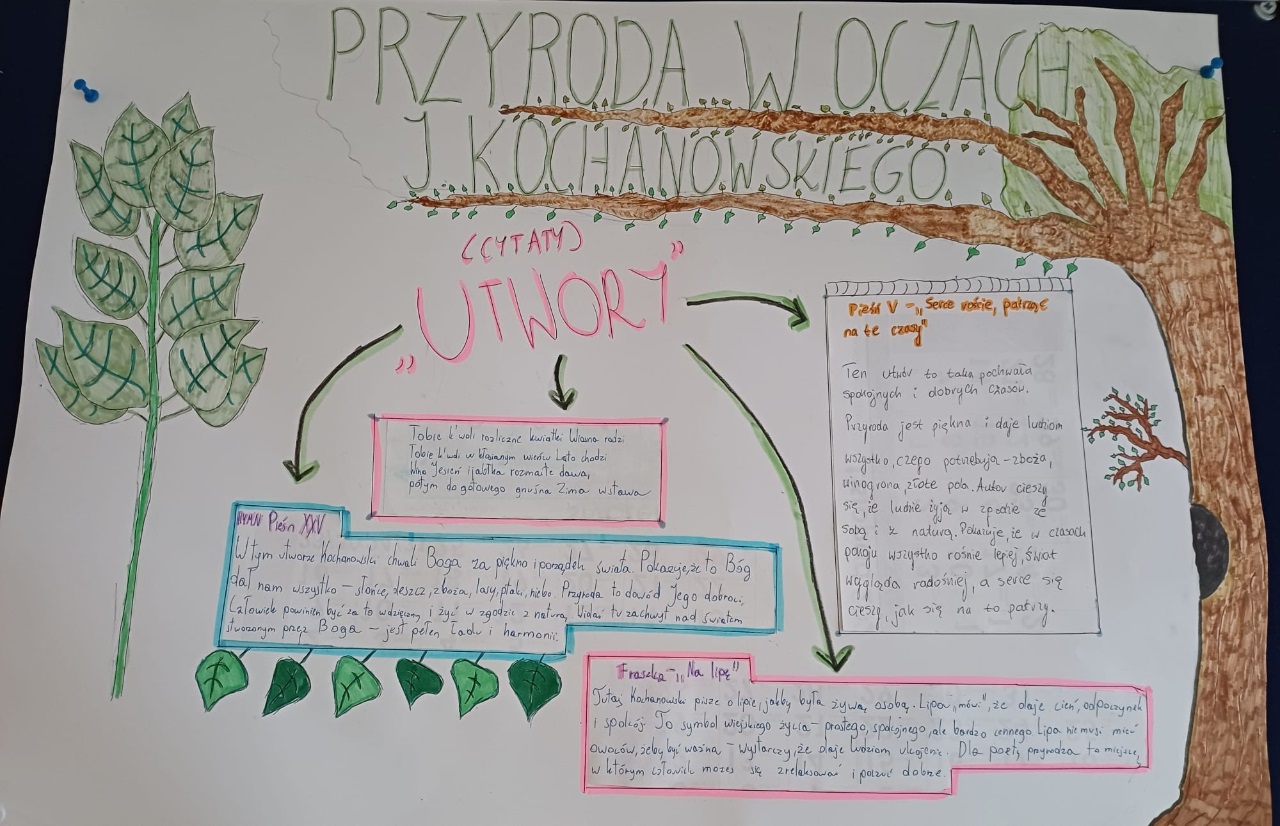 PRZYRODA W OCZACH
J. KOCHANOWSKIEGO
(CYTATY)
„UTWORY”
Tobie k'woli rozliczne kwiatki Wiosna rodzi
Tobie k'woli w kłosianym wieńcu Lato chodzi
Wino Jesień i jabłka rozmaite dawa,
potym do gotowego gnuśna Zima wstawa
Pieśń V - „Serce rośnie, patrząc
na te czasy"
Ten utwór to taka pochwała
spokojnych i dobrych czasów.
Przyroda jest piękna i daje ludziom
wszystko, czego potrzebują - zboża,
winogrona, złote pola. Autor cieszy
się, że ludzie żyją w zgodzie ze
sobą i z naturą. Pokazuje, że w czasach
pokoju wszystko rośnie lepiej, świat
wygląda radośniej, a serce się
cieszy, jak się na to patrzy.
HYMN Pieśń XXV
W tym utworze Kochanowski chwali Boga za piękno i porządek świata. Pokazuje, że to Bóg
dał nam wszystko - słońce, deszcz, zboża, lasy, ptaki, niebo. Przyroda to dowód Jego dobroci.
Człowiek powinien być za to wdzięczny i żyć w zgodzie z naturą. Widać tu zachwyt nad światem
stworzonym przez Boga - jest pełen ładu i harmonii.
Fraszka - „Na lipę"
Tutaj Kochanowski pisze o lipie, jakby była żywą osobą. Lipa „mówi", że daje cień, odpoczynek
i spokój. To symbol wiejskiego życia - prostego, spokojnego, ale bardzo cennego. Lipa nie musi mieć
owoców, żeby być ważna - wystarczy, że daje ludziom ukojenie. Dla poety przyroda to miejsce,
w którym człowiek może się zrelaksować i poczuć dobrze.